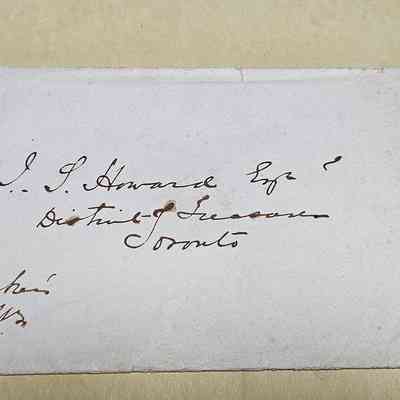 J. S. Howard Esqr
District Treasurer
Toronto